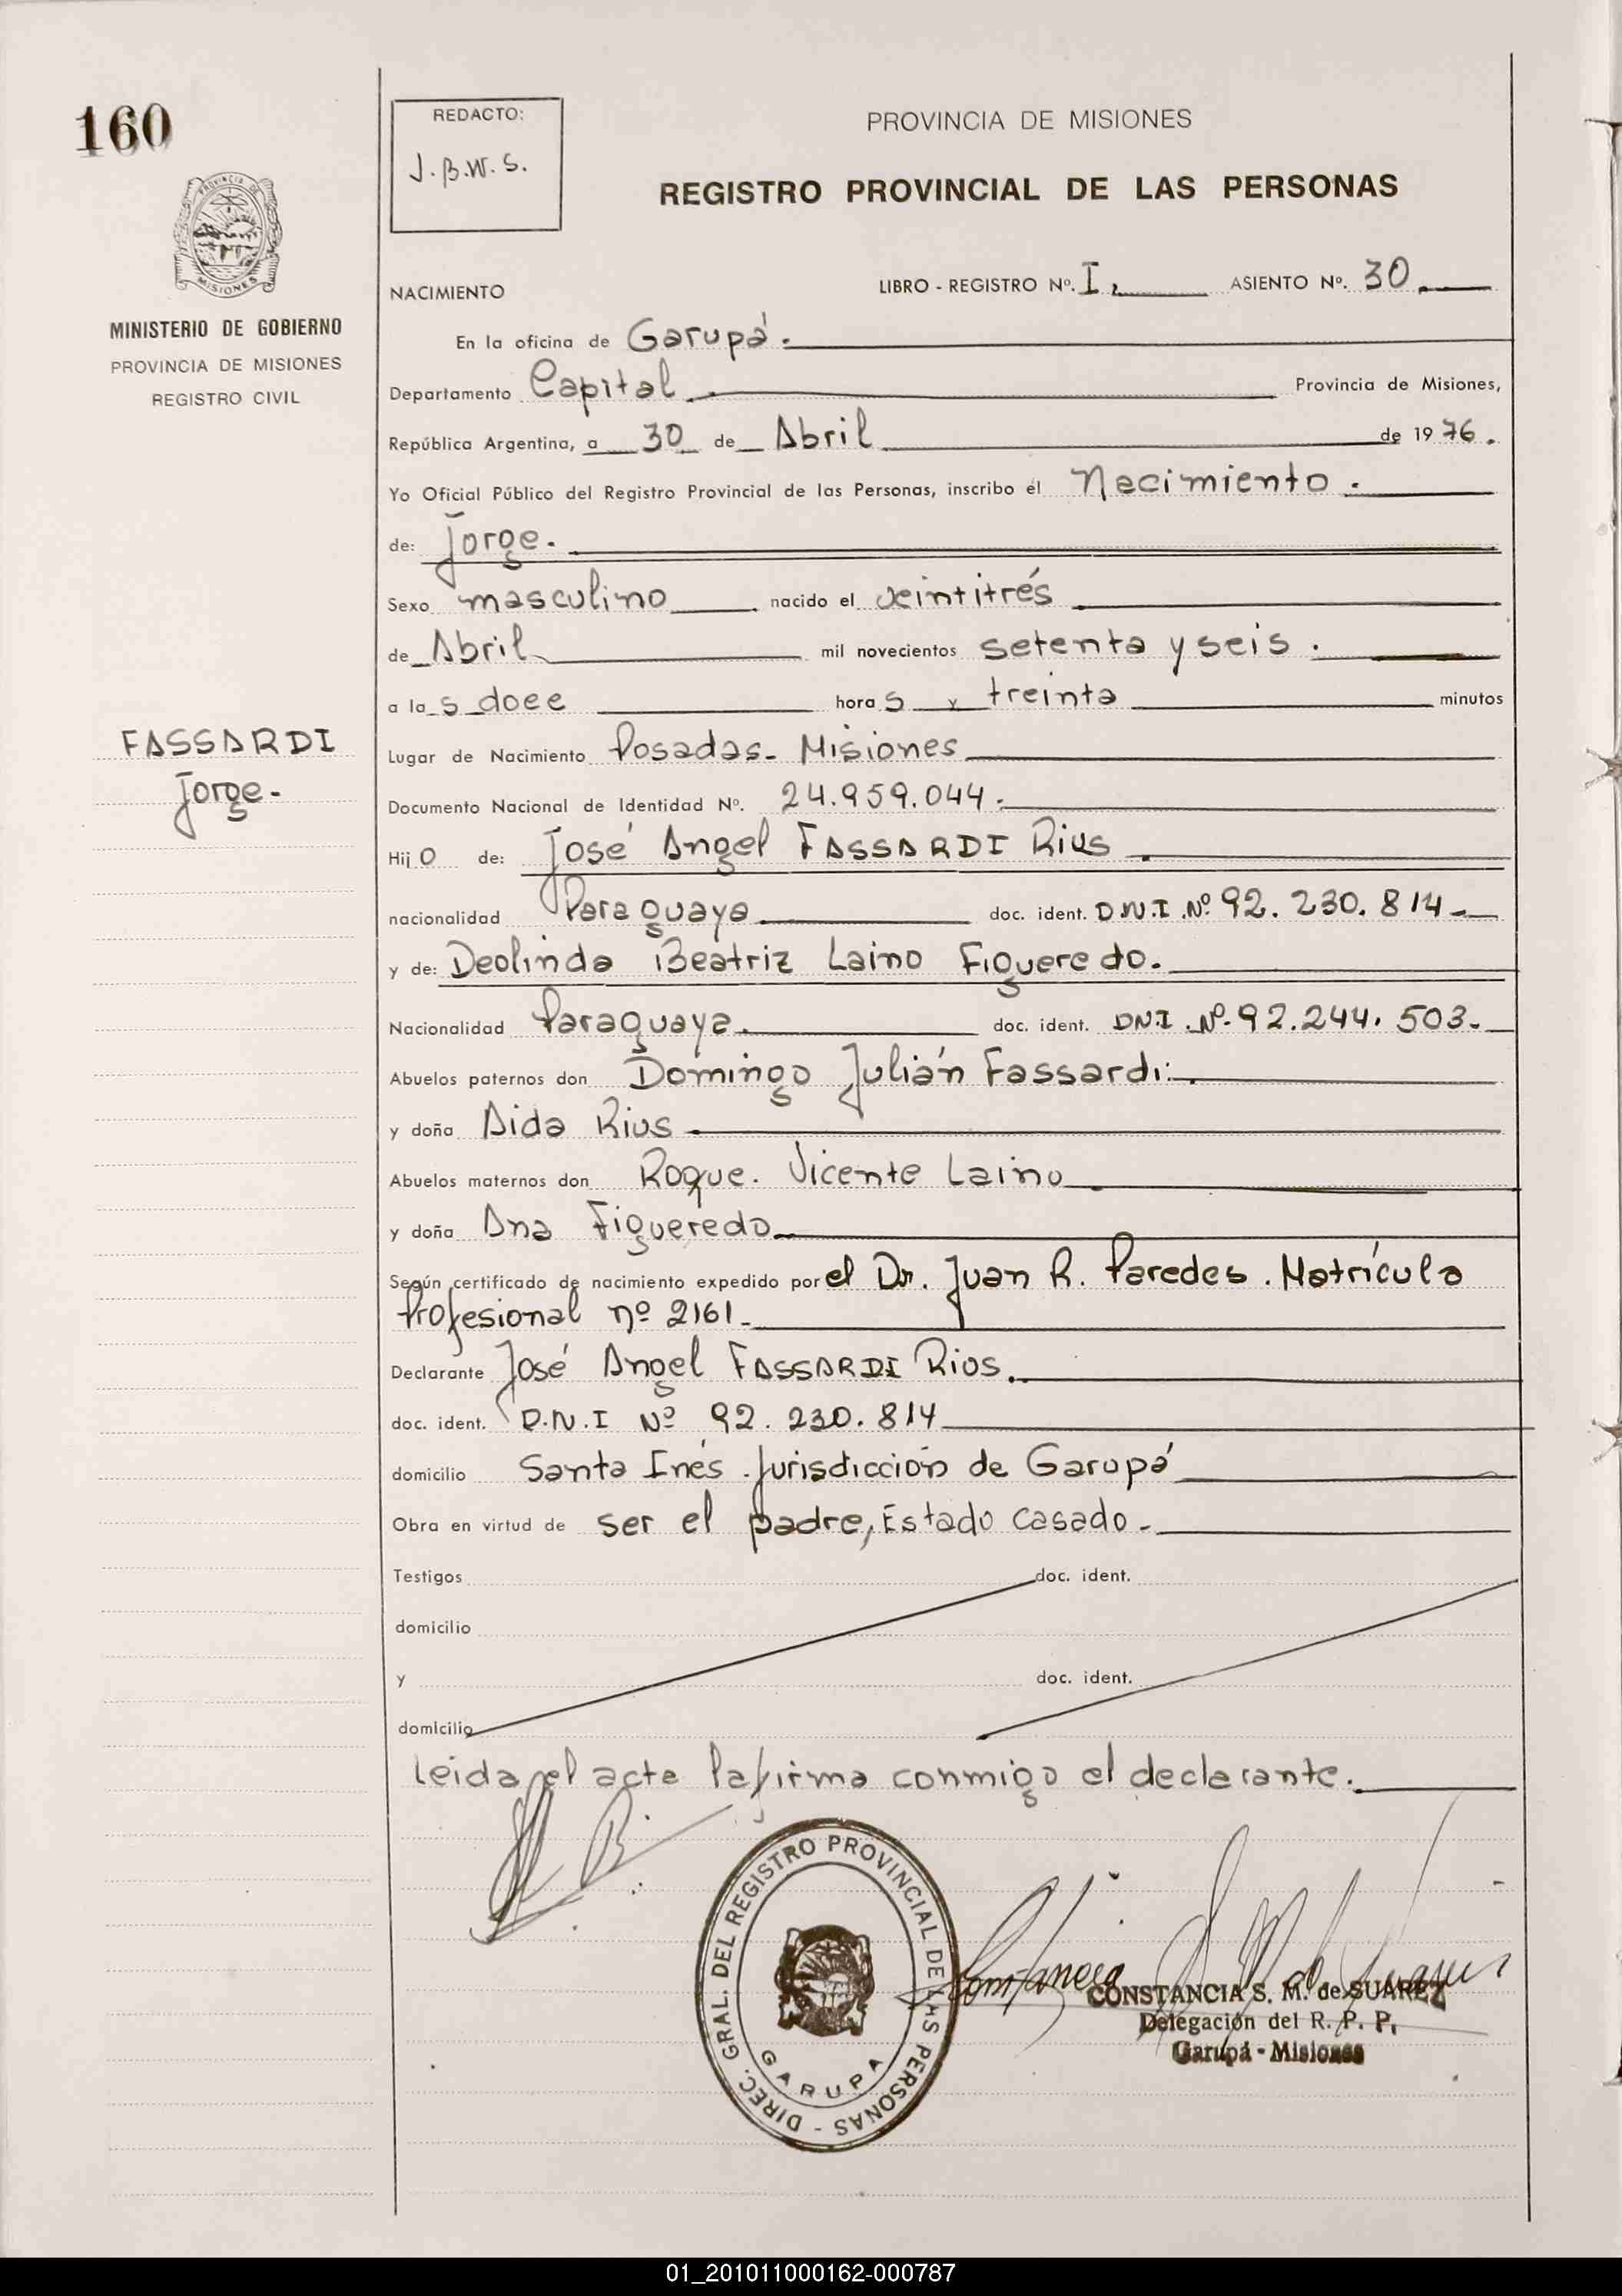 160
REDACTO:
J.B.W.S.
PROVINCIA DE MISIONES
REGISTRO PROVINCIAL DE LAS PERSONAS
MINISTERIO DE GOBIERNO
PROVINCIA DE MISIONES
REGISTRO CIVIL
NACIMIENTO LIBRO - REGISTRO Nº. I, ASIENTO Nº. 30.
En la oficina de Garupá.
Departamento Capital. Provincia de Misiones,
República Argentina, a 30 de Abril de 1976.
Yo Oficial Público del Registro Provincial de las Personas, inscribo el Nacimiento.
de: Jorge.
Sexo masculino nacido el veintitrés
de Abril mil novecientos setenta y seis.
a las doce horas y treinta minutos
FASSARDI
Jorge-
Lugar de Nacimiento Posadas- Misiones
Documento Nacional de Identidad Nº. 24.959.044.
Hijo de: José Angel FASSARDI Rius.
nacionalidad Paraguaya doc. ident. D.N.I. Nº 92.230.814-
y de: Deolinda Beatriz Laino Figueredo.
Nacionalidad Paraguaya. doc. ident. DN.I. Nº. 92.244.503.
Abuelos paternos don Domingo Julián Fassardi.
y doña Aida Rius
Abuelos maternos don Roque. Vicente Laino
y doña Ana Figueredo
Según certificado de nacimiento expedido por el Dr. Juan R. Paredes. Matrícula
Profesional nº 2161-
Declarante José Angel FASSARDI Rios.
doc. ident. D.N.I Nº 92.230.814
domicilio Santa Inés. Jurisdicción de Garupá
Obra en virtud de ser el padre, Estado casado-
Testigos doc. ident.
domicilio
y doc. ident.
domicilio
leida el acta la firma conmigo el declarante.
DIREC. GRAL. DEL REGISTRO PROVINCIAL DE LAS PERSONAS -
GARUPA
CONSTANCIA S. M. de SUAREZ
Delegación del R. P. P.
Garupá - Misiones
01_201011000162-000787